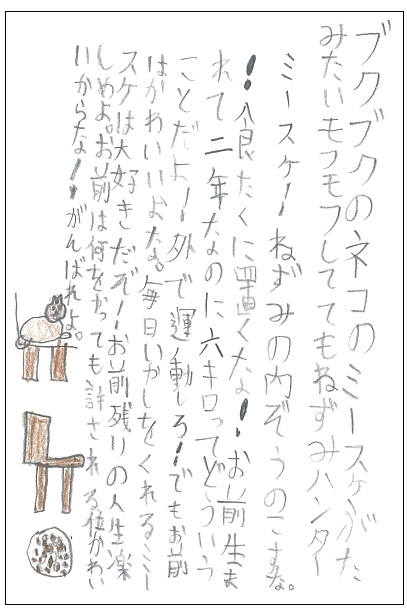 ブクブクのネコのミースケがた
みたいもフモフしててもねずみハンター
ミースケ!ねずみの内ぞうのこすな。
!食たくに置くな!お前生ま
れて二年なのに六キロってどういう
ことだよ!外で運動しろ!でもお前
はかわいいよな。毎日いかしをくれるミー
スケは大好きだぞ!お前残りの人生楽
しめよ。お前は何をやっても許される位かわい
いからな!!がんばれよ。